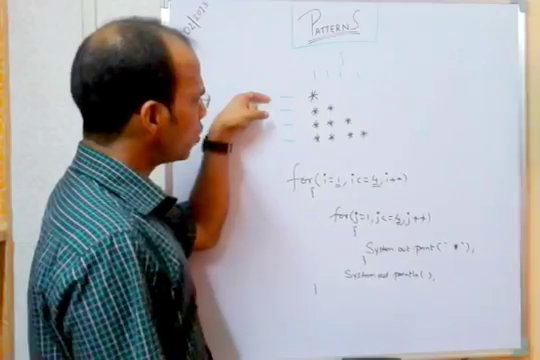 02/2023
PATTERNS
*
* *
* * *
* * * *
for(i=1,i<=4,i++)
{
for(j=1,j<=4,j++)
{
System out print("*"),
}
System out println(),
}